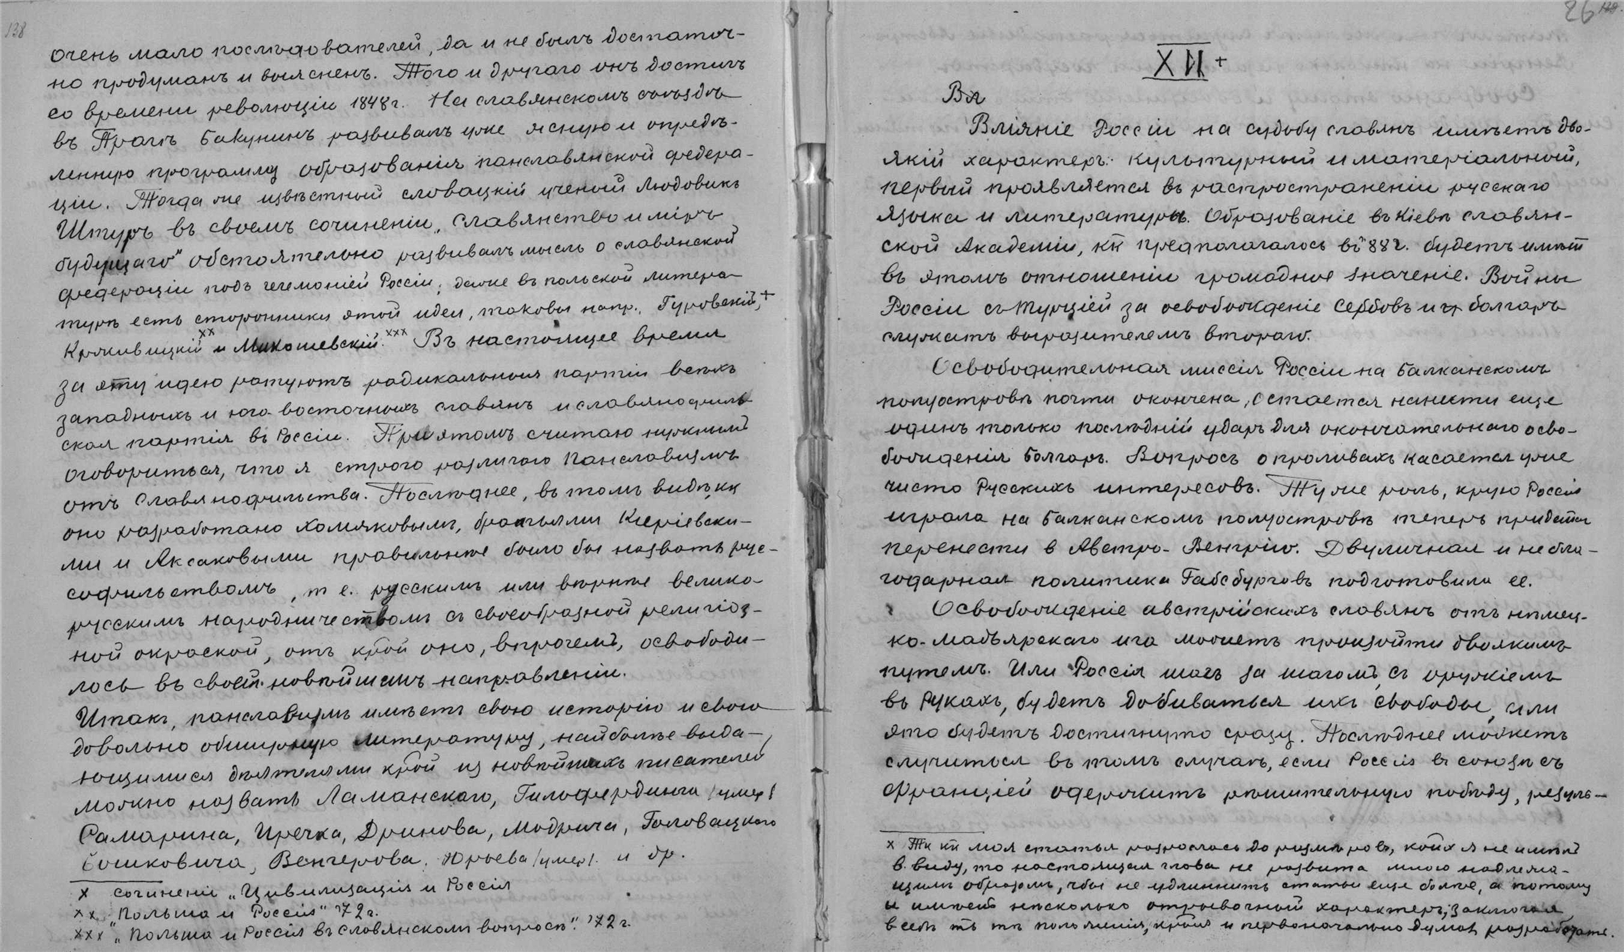 138
очень мало послѣдователей, да и не былъ достаточ-
но продуманъ и выясненъ. Того и другаго онъ достигъ
со времени революціи 1848 г. На славянскомъ съѣздѣ
въ Прагѣ Бакунинъ развивалъ уже ясную и опредѣ-
ленную программу образованія панславянской федера-
ціи. Тогда же извѣстный словацкій ученый Людовикъ
Штуръ въ своемъ сочиненіи „Славянство и міръ
будущаго" обстоятельно развивалъ мысль о славянской
федераціи подъ гегемоніей Россіи; далѣе въ польской литера-
турѣ есть сторонники этой идеи, таковы напр. Гуровскій,+
Крживицкій xx и Микошевскій. xxx Въ настоящее время
за эту идею ратуютъ радикальныя партіи всѣхъ
западныхъ и юго-восточныхъ славянъ и славянофиль-
ская партія въ Россіи. При этомъ считаю нужнымъ
оговориться, что я строго различаю панславизмъ
отъ славянофильства. Послѣднее, въ томъ видѣ, кк
оно разработано Хомяковымъ, братьями Кирѣевски-
ми и Аксаковыми правильнѣе было бы назвать рус-
софильствомъ, т е. русскимъ или вѣрнѣе велико-
русскимъ народничествомъ съ своеобразной религіоз-
ной окраской, отъ крой оно, впрочемъ, освободи-
лось въ своемъ новѣйшемъ направленіи.
Итакъ, панславизмъ имѣетъ свою исторію и свою
довольно обширную литературу, наиболѣе выда-
ющимися дѣятелями крой из новѣйшихъ писателей
можно назвать Ламанскаго, Гильфердинга /умер/
Самарина, Иречка, Дринова, Модрича, Головацкаго
Бошковича, Венгерова, Юрьева /умер/. и др.
x сочиненіи „Цивилизація и Россія
xx „Польша и Россія" '72 г.
xxx „Польша и Россія въ славянскомъ вопросѣ". '72 г.
26
XII +
Вл
Вліяніе Россіи на судьбу славянъ имѣетъ дво-
якій характеръ: культурный и матеріальный,
первый проявляется въ распространеніи русскаго
языка и литературы. Образованіе въ Кіевѣ славян-
ской Академіи, кк предполагалось въ 88 г. будетъ имѣть
въ этомъ отношеніи громадное значеніе. Войны
Россіи съ Турціей за освобожденіе Сербовъ и болгаръ
служатъ выразителемъ втораго.
Освободительная миссія Россіи на Балканскомъ
полуостровѣ почти окончена, остается нанести еще
одинъ только послѣдній ударъ для окончательнаго осво-
божденія Болгаръ. Вопросъ о проливахъ касается уже
чисто Русскихъ интересовъ. Ту же роль, крую Россія
играла на Балканскомъ полуостровѣ теперь придется
перенести в Австро-Венгрію. Двуличная и небла-
годарная политика Габсбурговъ подготовила ее.
Освобожденіе австрійскихъ славянъ отъ нѣмец-
ко-мадьярскаго ига можетъ произойти двоякимъ
путемъ. Или Россія шагъ за шагомъ, съ оружіемъ
въ рукахъ, будетъ добиваться ихъ свободы, или
это будетъ достигнуто сразу. Послѣднее можетъ
случиться въ томъ случаѣ, если Россія въ союзѣ съ
Франціей одержитъ рѣшительную побѣду, резуль-
x Тк кк моя статья разрослась до размѣровъ, коихъ я не имѣлъ
в виду, то настоящая глава не развита мною надлежа-
щимъ образомъ, чтобы не удлиннить статьи еще болѣе, а потому
и имѣетъ нѣсколько отрывочный характеръ, заключая
в себѣ тѣ положенія, крыя я первоначально думалъ разработать.